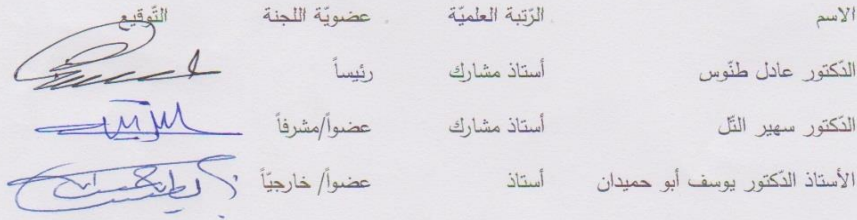 الاسم الرّتبة العلميّة عضويّة اللجنة التّوقيع
الدّكتور عادل طنّوس أستاذ مشارك رئيساً
الدّكتور سهير التّل أستاذ مشارك عضواً/مشرفاً
الأستاذ الدّكتور يوسف أبو حميدان أستاذ عضواً/ خارجيّاً